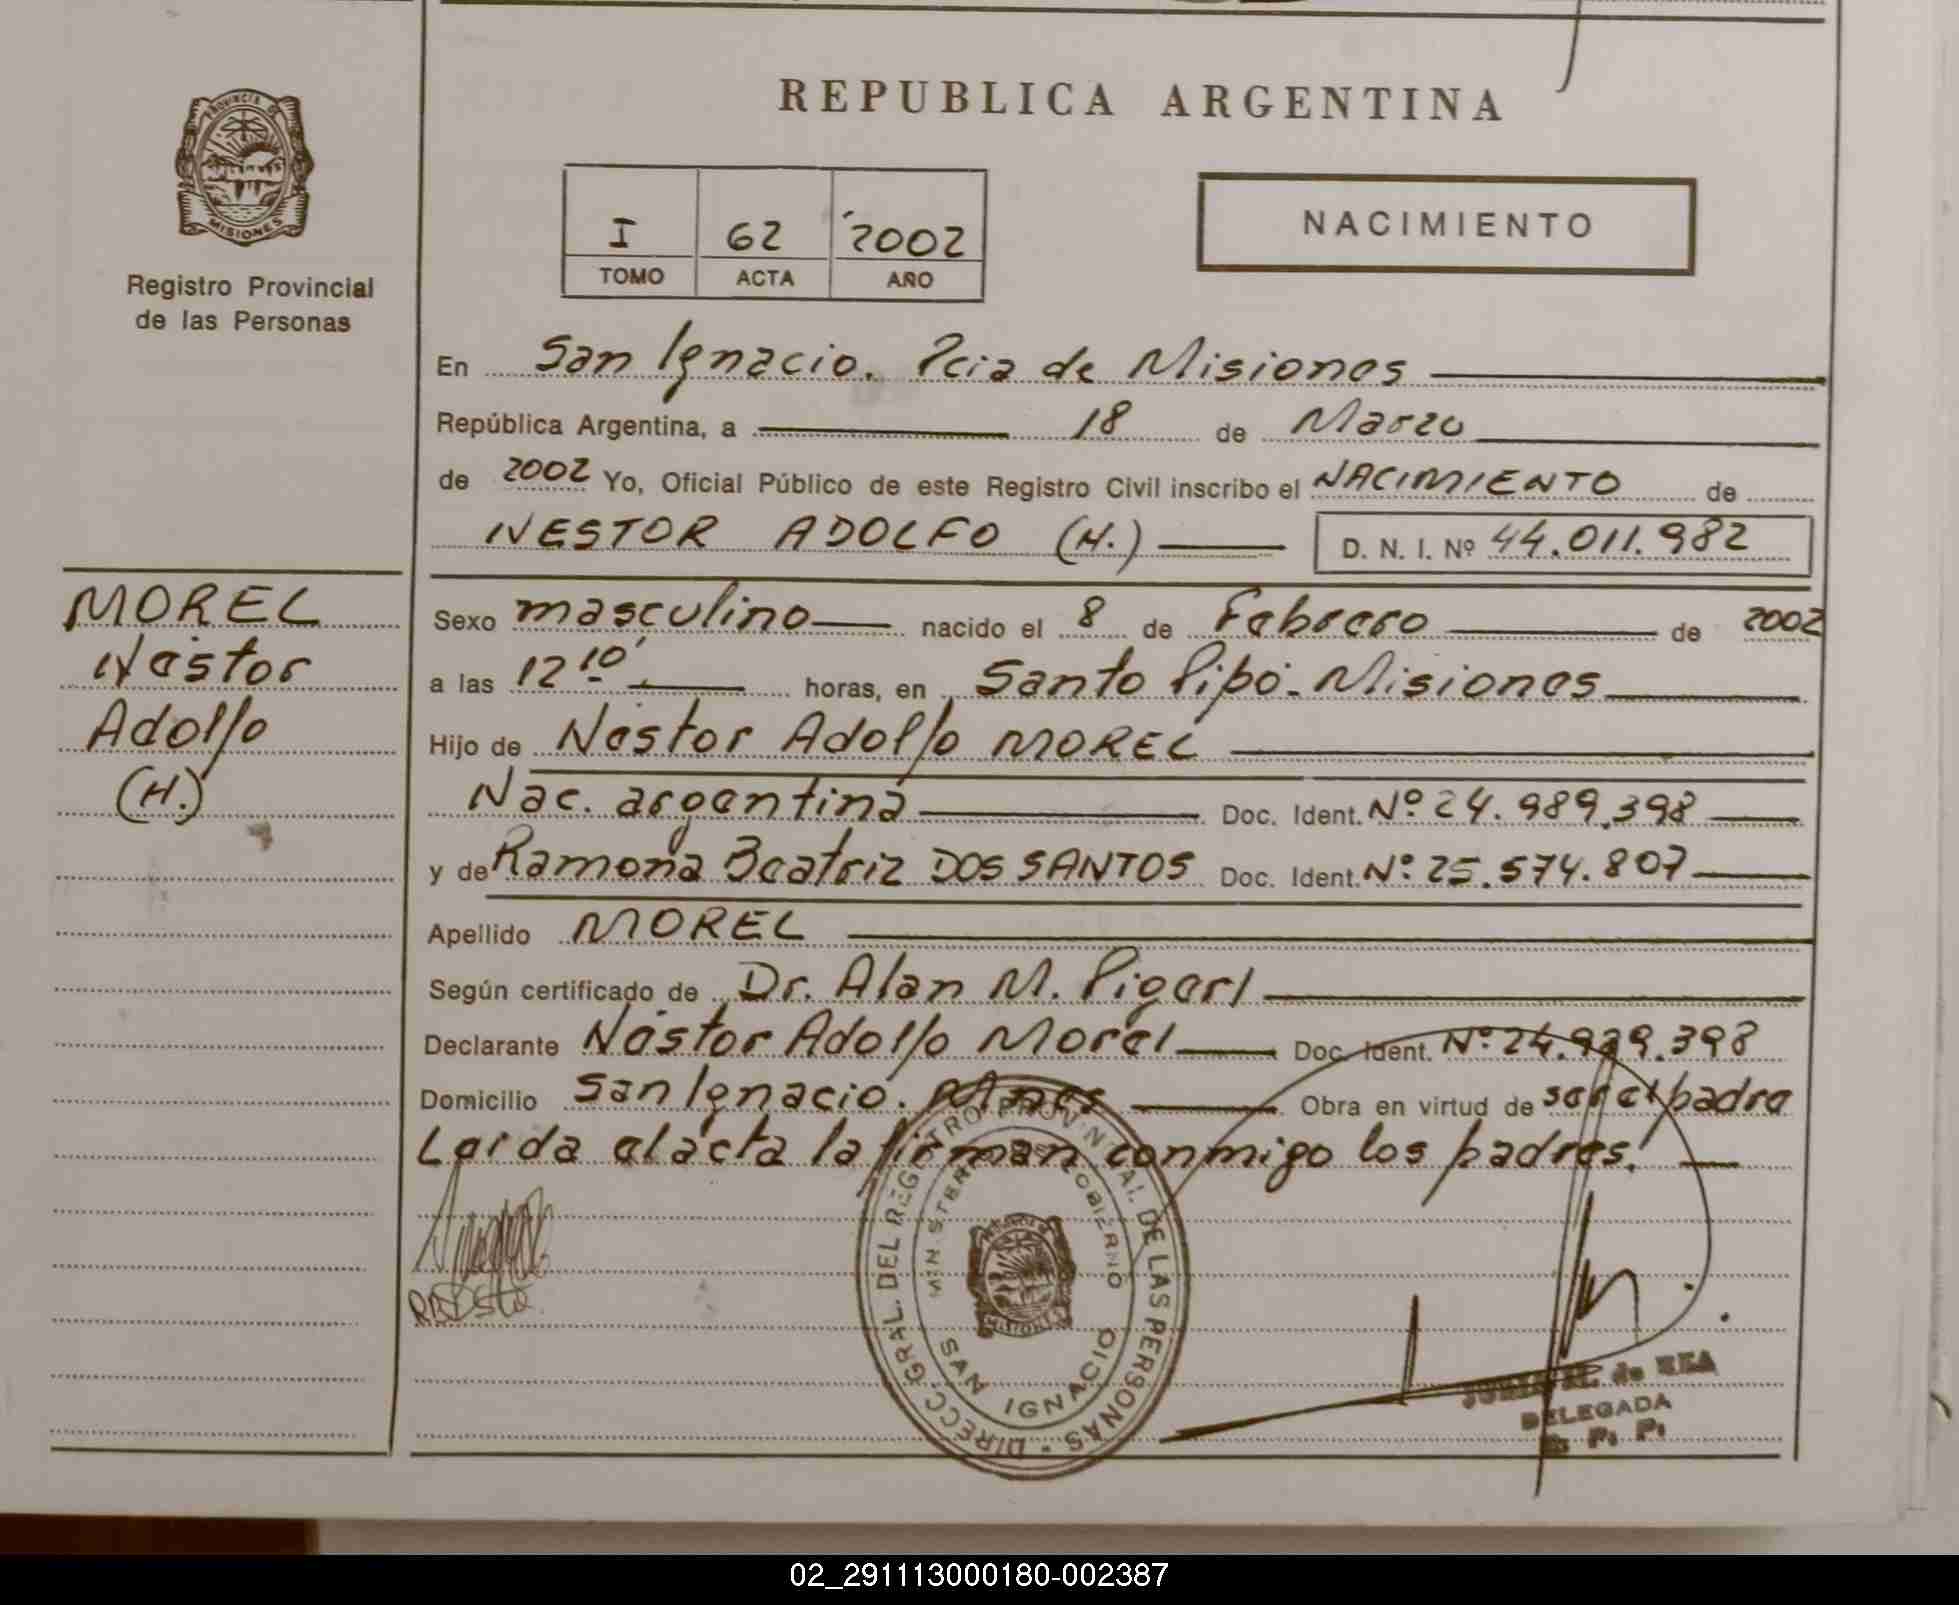 REPUBLICA ARGENTINA
PROVINCIA DE
MISIONES
Registro Provincial
de las Personas
I 62 2002
TOMO ACTA AÑO
NACIMIENTO
En San Ignacio. Pcia de Misiones
República Argentina, a 18 de Marzo
de 2002 Yo, Oficial Público de este Registro Civil inscribo el NACIMIENTO de
NESTOR ADOLFO (H.) D. N. I. Nº 44.011.982
MOREL
Néstor
Adolfo
(H.)
Sexo masculino nacido el 8 de Febrero de 2002
a las 12 10' horas, en Santo Pipó - Misiones
Hijo de Néstor Adolfo MOREL
Nac. argentina Doc. Ident. Nº 24.989.398
y de Ramona Beatriz DOS SANTOS Doc. Ident. Nº 25.574.807
Apellido MOREL
Según certificado de Dr. Alan M. Pigerl
Declarante Néstor Adolfo Morel Doc. Ident. Nº 24.989.398
Domicilio San Ignacio. Mnes Obra en virtud de ser el padre
Leída el acta la firman conmigo los padres.
DIRECC. GRAL. DEL REGISTRO PROVINCIAL DE LAS PERSONAS
MINISTERIO DE GOBIERNO
SAN IGNACIO
MISIONES
de REA
DELEGADA
R. P. P.
02_291113000180-002387